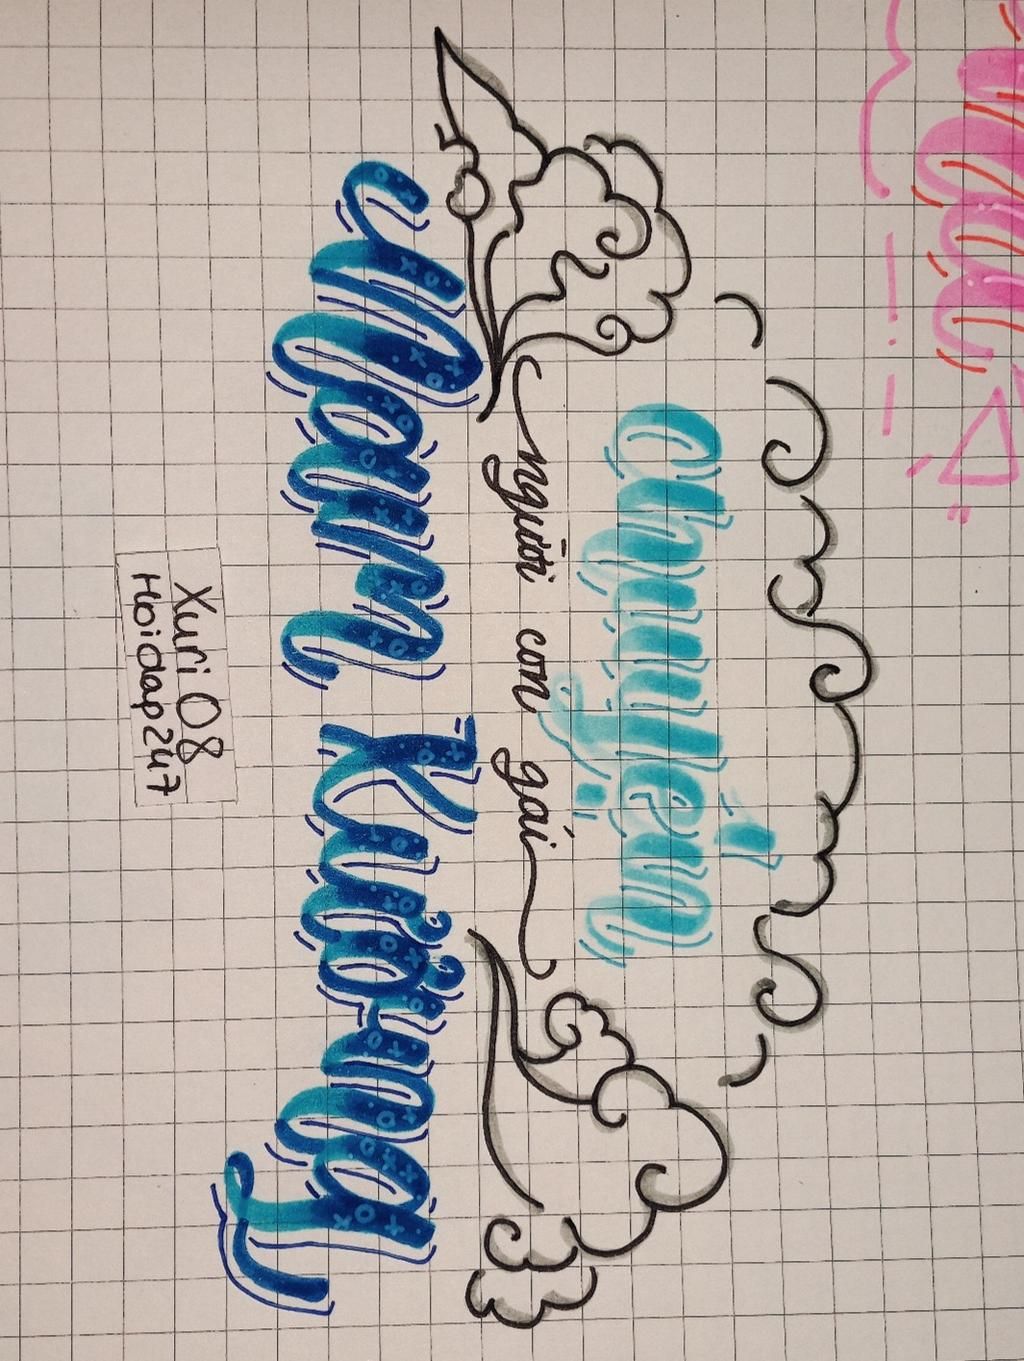 Chuyện
người con gái
Nam Xương
Xuri 08
Hoidap247